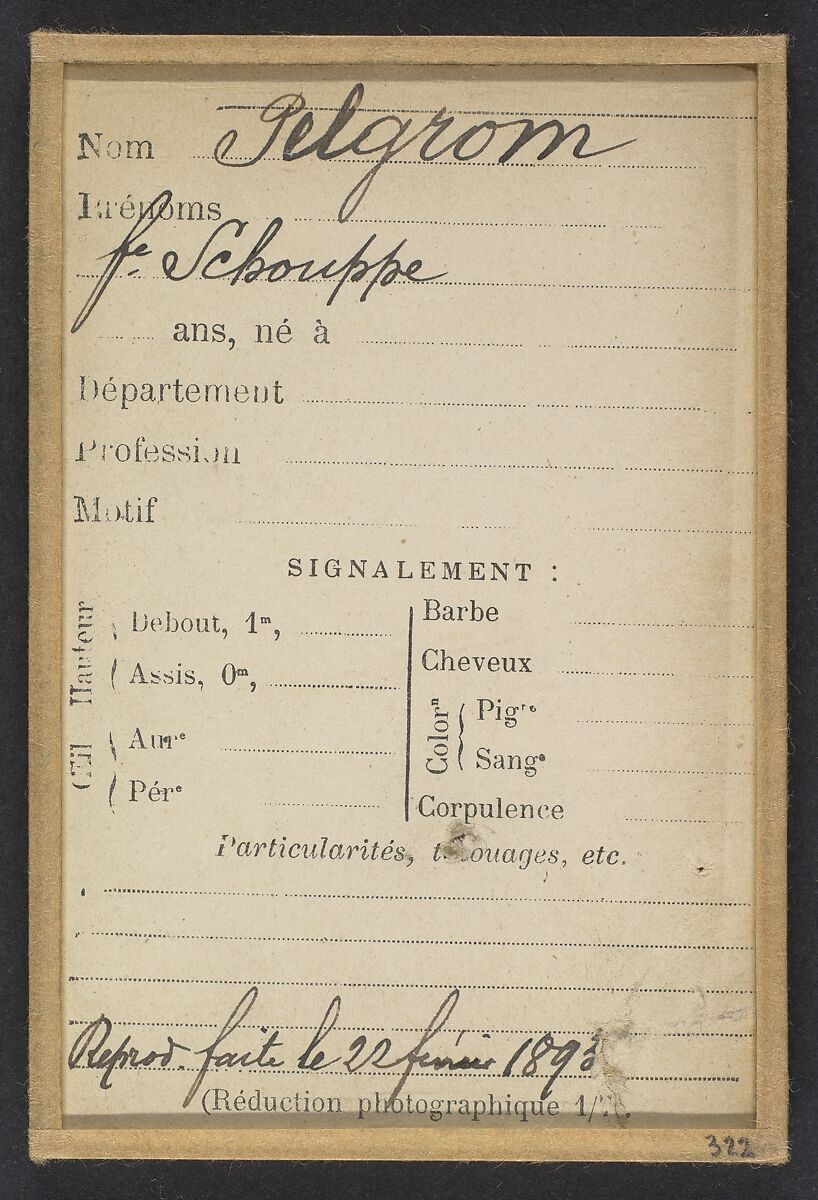 Nom Pelgrom
Prénoms
fe. Schouppe
ans, né à
Département
Profession
Motif
SIGNALEMENT :
Hauteur
Debout, 1m,
Assis, 0m,
Œil
Aure
Pére
Barbe
Cheveux
Colorn
Pigre
Sange
Corpulence
Particularités, tatouages, etc.
Reprod. faite le 22 février 1893
(Réduction photographique 1/
322